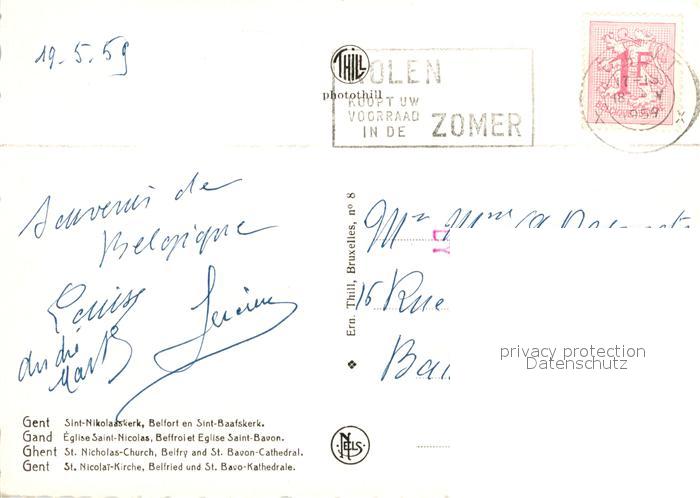 19.5.59
THILL
photothill
KOLEN
KOOPT UW
VOORRAAD
IN DE ZOMER
1F
1959
Souvenir de
Belgique
Louise
Lucien
André
Ern. Thill, Bruxelles, nº 8
Mr Mme
16 Rue
privacy protection
Datenschutz
Gent Sint-Nikolaaskerk, Belfort en Sint-Baafskerk.
Gand Église Saint-Nicolas, Beffroi et Eglise Saint-Bavon.
Ghent St. Nicholas-Church, Belfry and St. Bavon-Cathedral.
Gent St. Nicolaï-Kirche, Belfried und St. Bavo-Kathedrale.
NELS